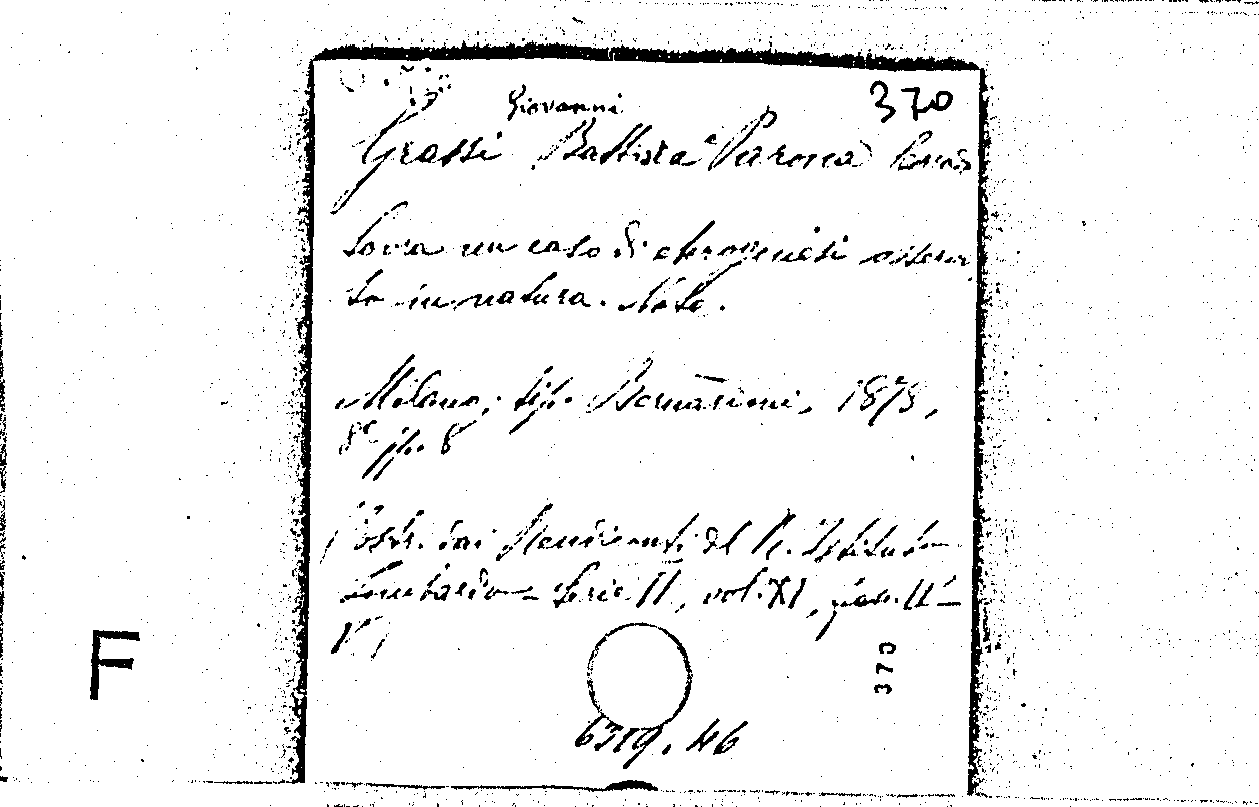 370
Giovanni
Grassi Battista e Parona
Sovra un caso di eterogenesi osserva
to in natura. Nota.
Milano, tip. Bernardoni, 1878,
8° pp. 8
(Estr. dai Rendiconti del R. Istituto
Lombardo - Serie II, vol. XI, fasc. II -
370
F
6319.46